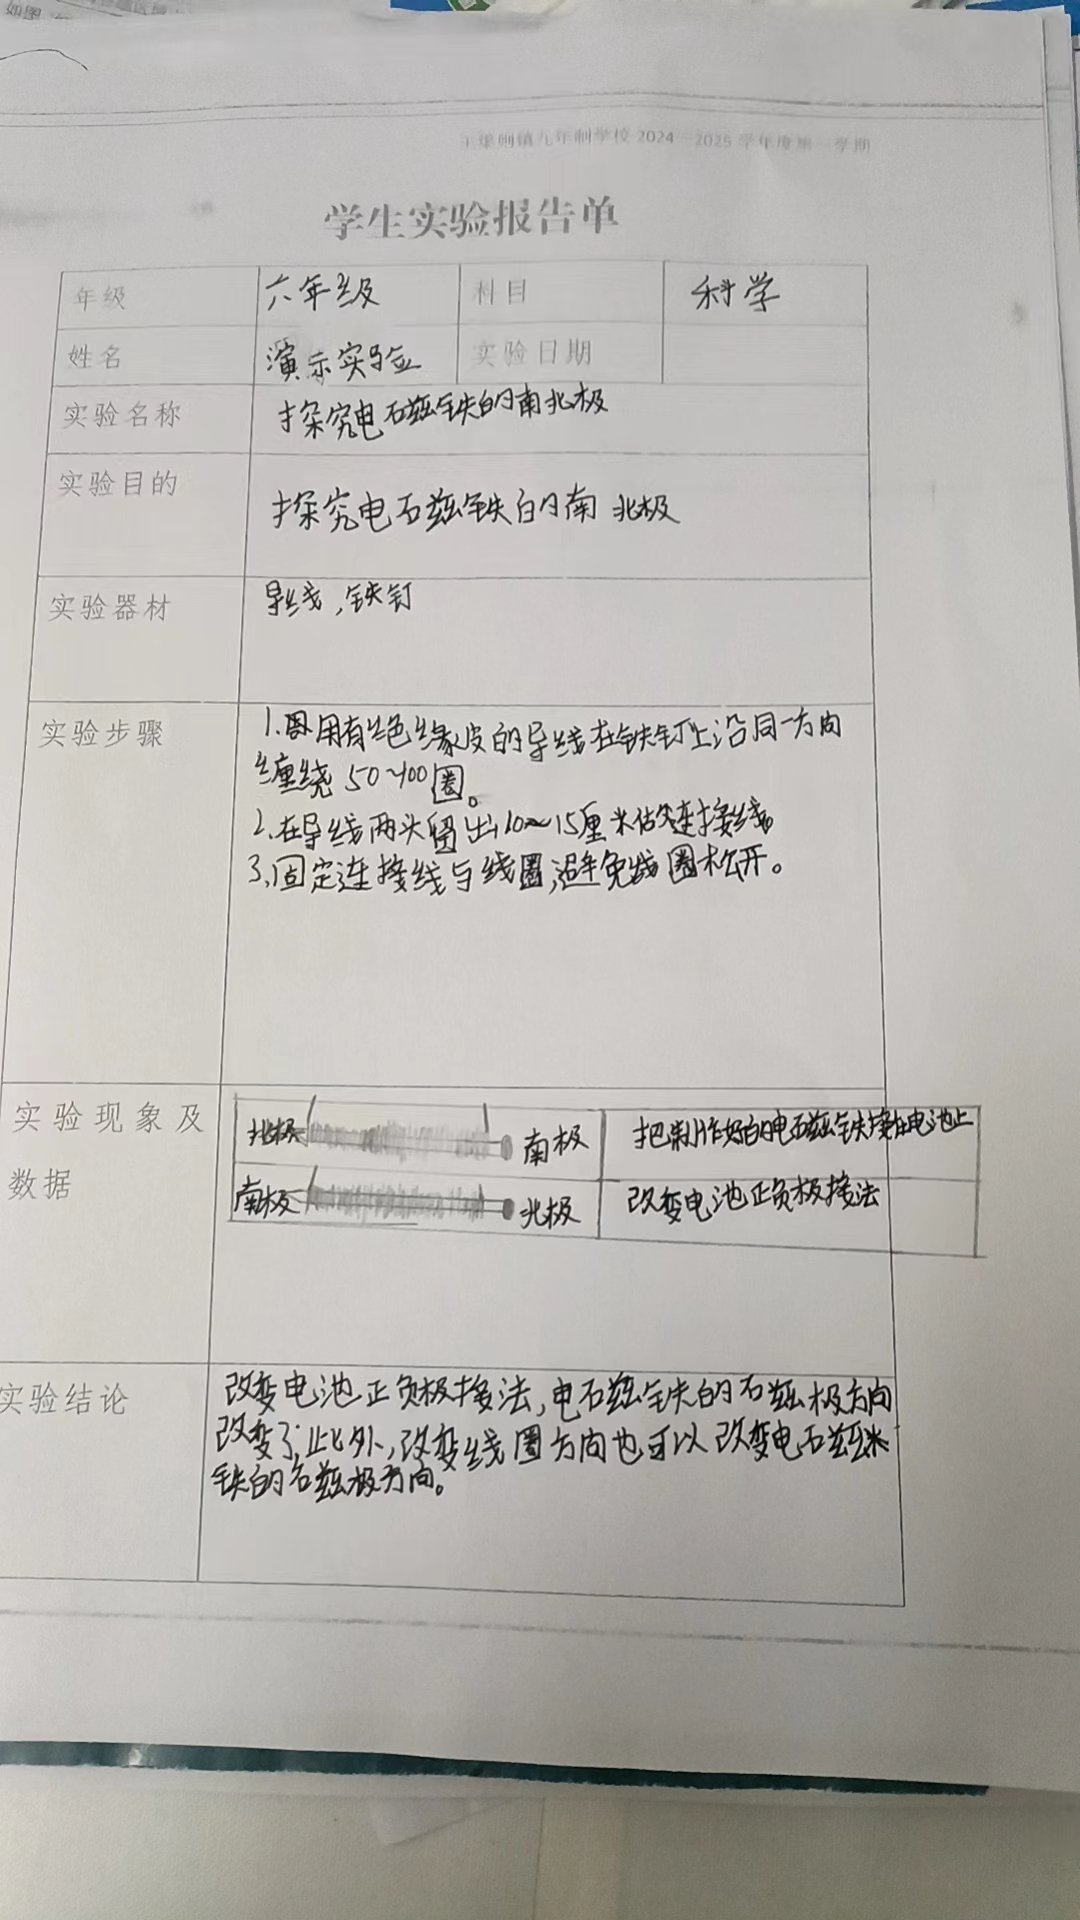 如图
镇九年制学校 2024－2025 学年度第一学期
学生实验报告单
年级 六年级 科目 科学
姓名 演示实验 实验日期
实验名称 探究电磁铁的南北极
实验目的 探究电磁铁的南北极
实验器材 导线,铁钉
实验步骤 1.用有绝缘皮的导线在铁钉上沿同一方向
缠绕50~100圈。
2.在导线两头留出10~15厘米做连接线。
3.固定连接线与线圈,避免线圈松开。
实验现象及
数据
北极 南极 把制作好的电磁铁接在电池上
南极 北极 改变电池正负极接法
实验结论 改变电池正负极接法,电磁铁的磁极方向
改变了,此外,改变线圈方向也可以改变电磁
铁的磁极方向。